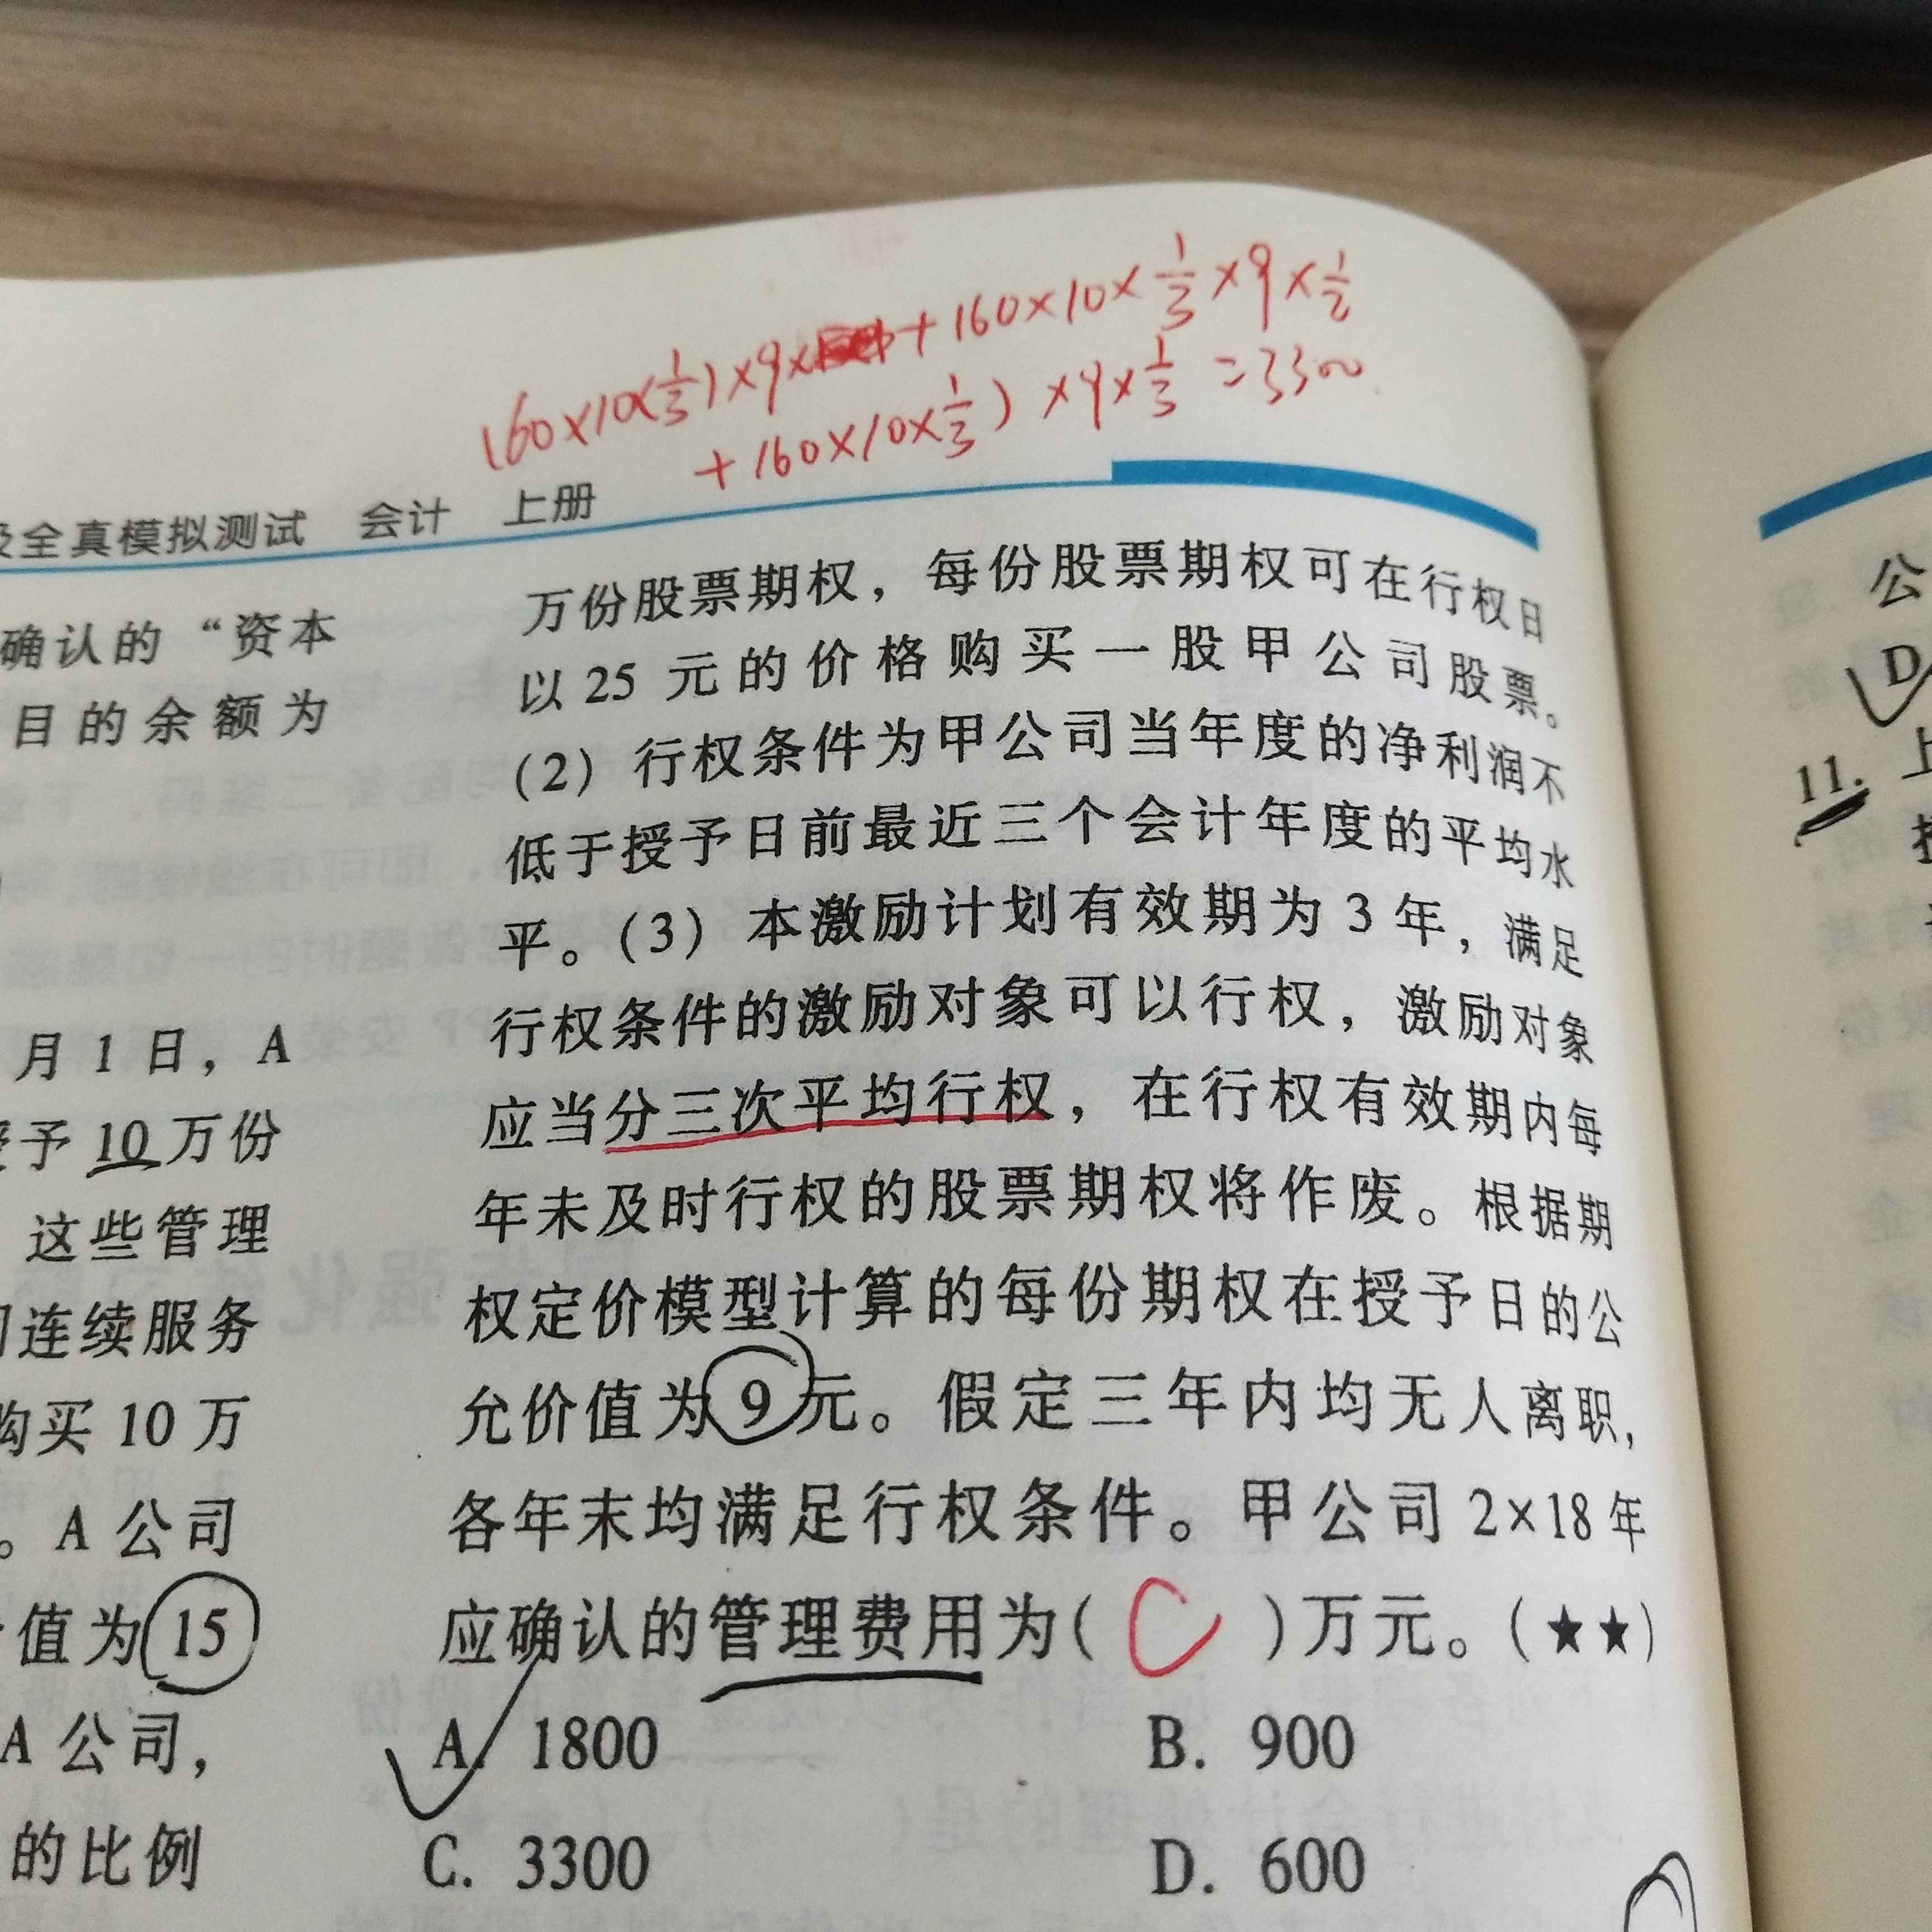 160×10×(1/3)×9×+160×10×1/3×9×1/2
+160×10×1/3)×9×1/3=3300
及全真模拟测试 会计 上册
确认的“资本
目的余额为
月1日，A
授予10万份
这些管理
连续服务
购买10万
。A公司
值为15
A公司，
的比例
万份股票期权，每份股票期权可在行权日
以25元的价格购买一股甲公司股票。
(2)行权条件为甲公司当年度的净利润不
低于授予日前最近三个会计年度的平均水
平。(3)本激励计划有效期为3年，满足
行权条件的激励对象可以行权，激励对象
应当分三次平均行权，在行权有效期内每
年未及时行权的股票期权将作废。根据期
权定价模型计算的每份期权在授予日的公
允价值为9元。假定三年内均无人离职，
各年末均满足行权条件。甲公司2×18年
应确认的管理费用为( C )万元。(★★)
A. 1800 B. 900
C. 3300 D. 600
公
D
11. 上